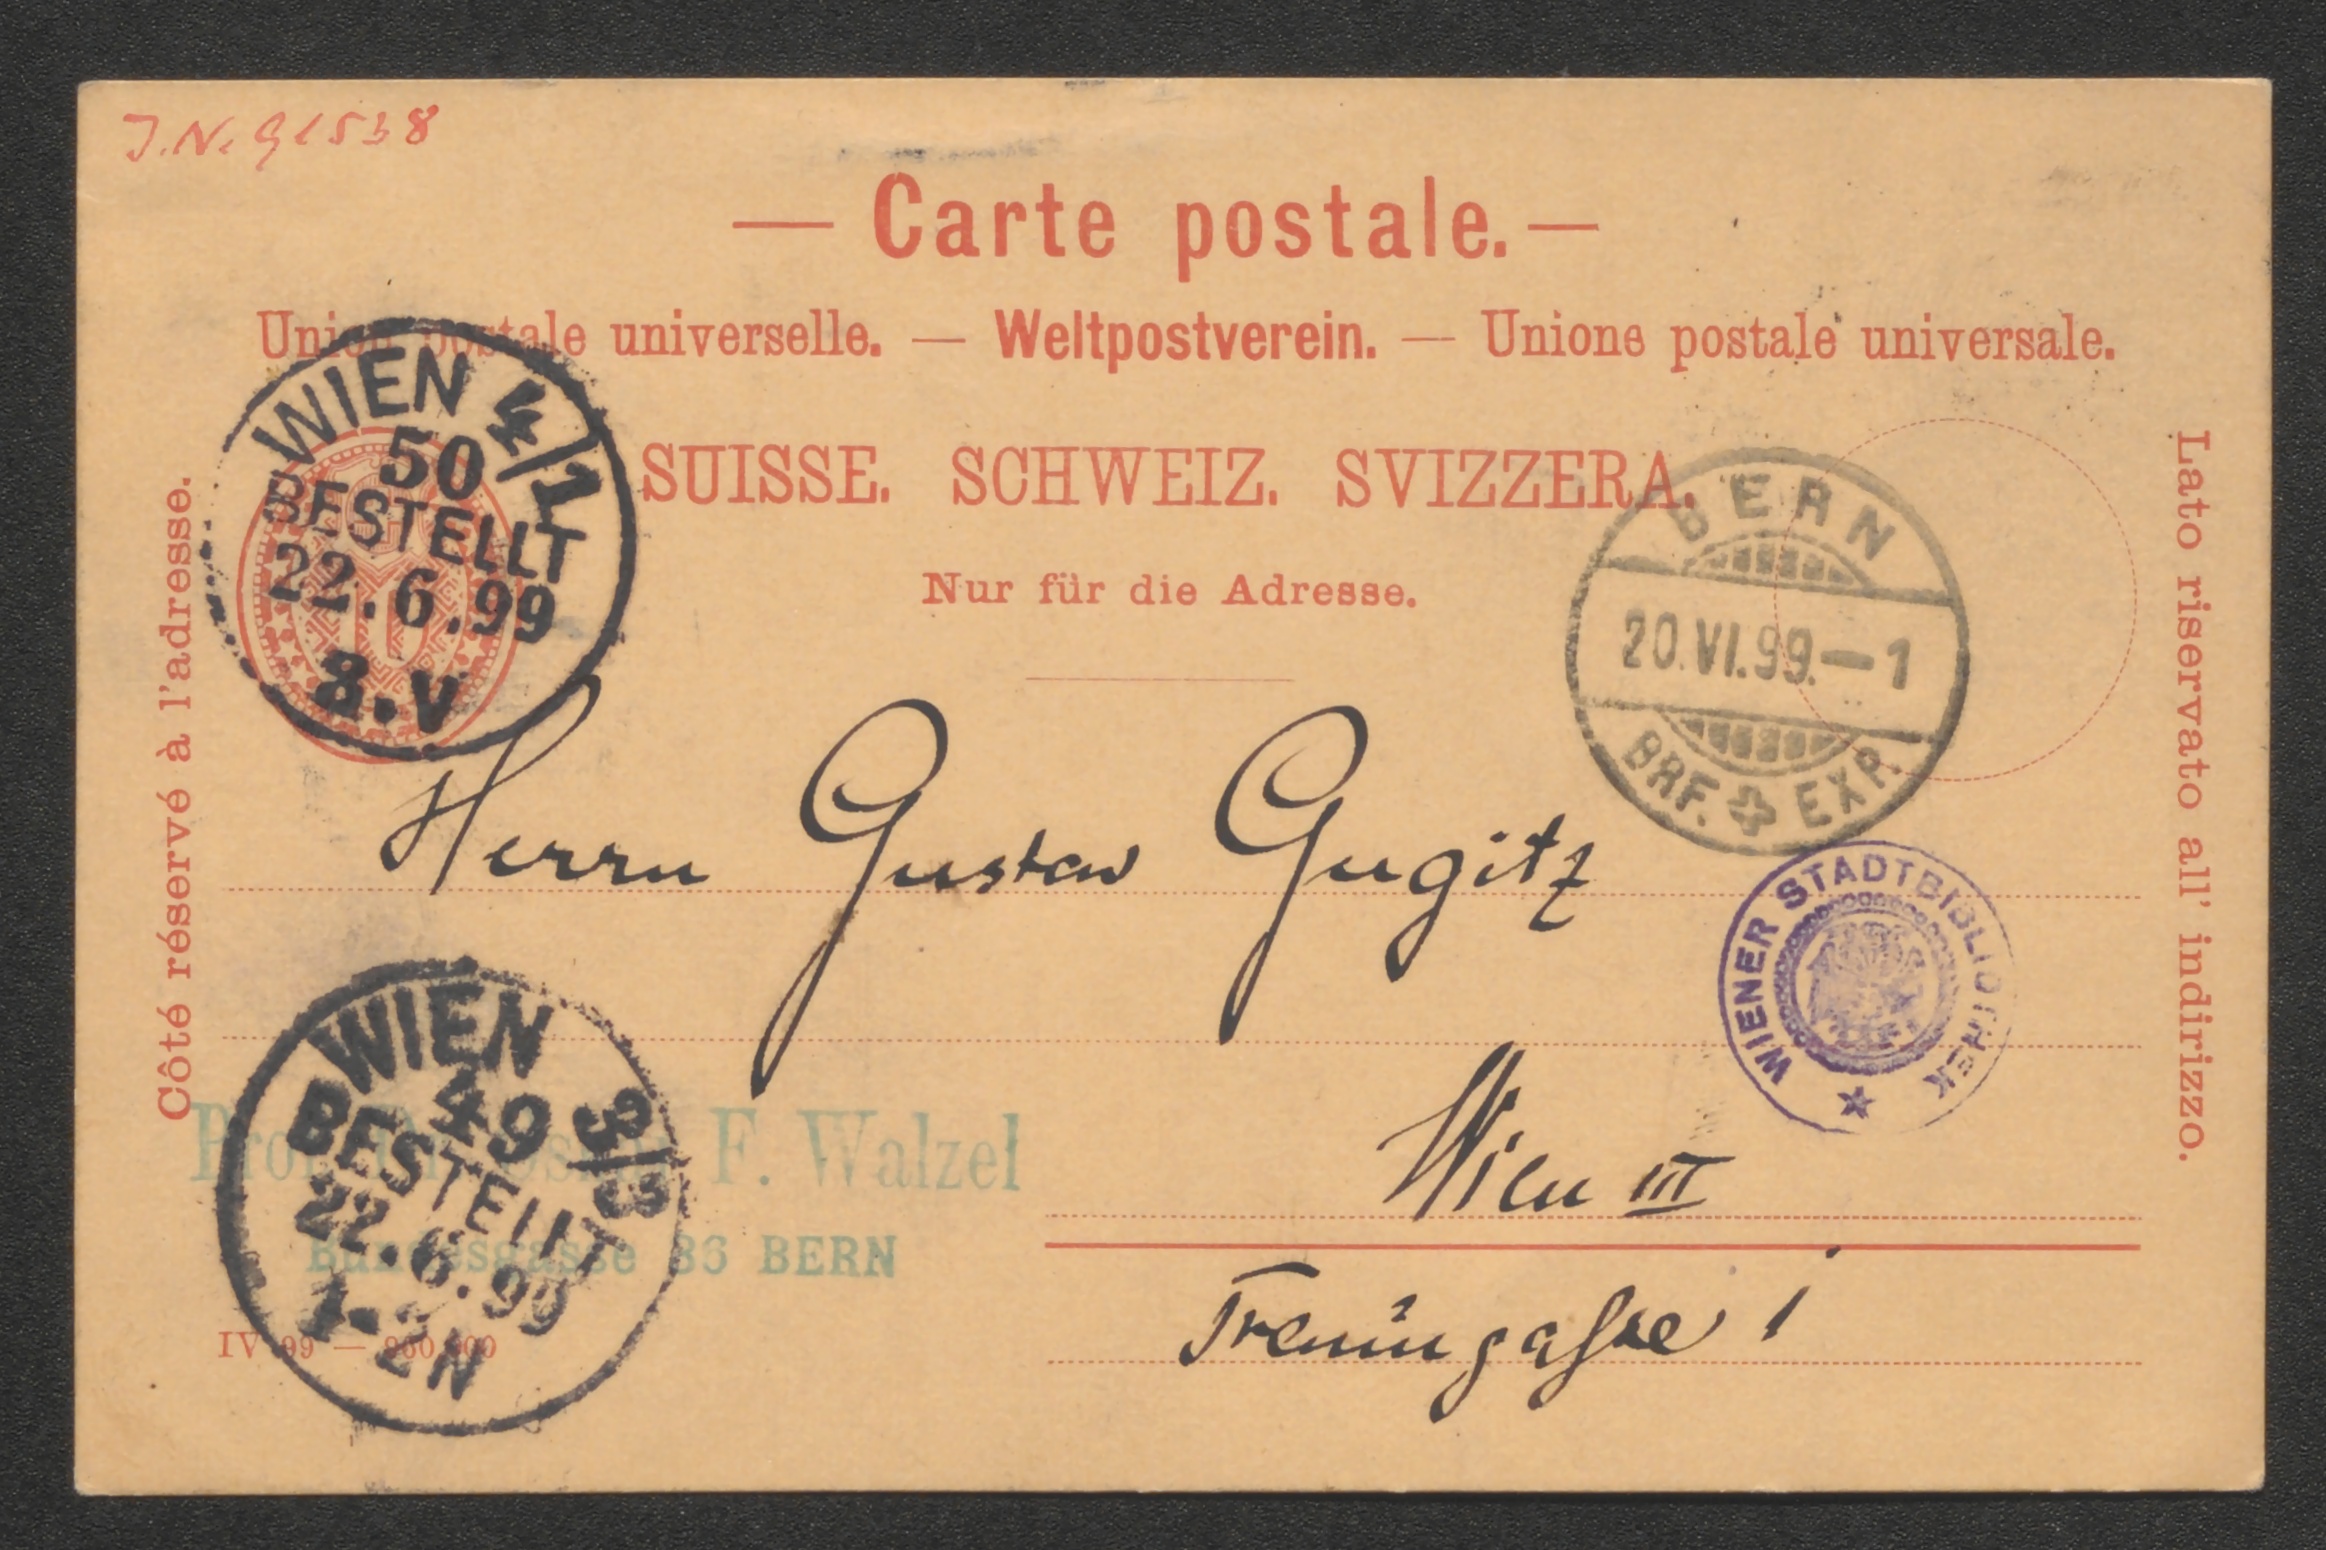 J.N. 91538
— Carte postale. —
Union postale universelle. — Weltpostverein. — Unione postale universale.
SUISSE. SCHWEIZ. SVIZZERA.
Nur für die Adresse.
Côté réservé à l'adresse.
Lato riservato all' indirizzo.
WIEN 4/1
50
BESTELLT
22.6.99
8.V
10
BERN
20.VI.99.—1
BRF. EXP.
Herrn Gustav Gugitz
WIENER STADTBIBLIOTHEK
Wien III
gasse 1
WIEN 3/3
49
BESTELLT
22.6.99
1-2N
Prof. F. Walzel
Bundesgasse 36 BERN
IV 99 —